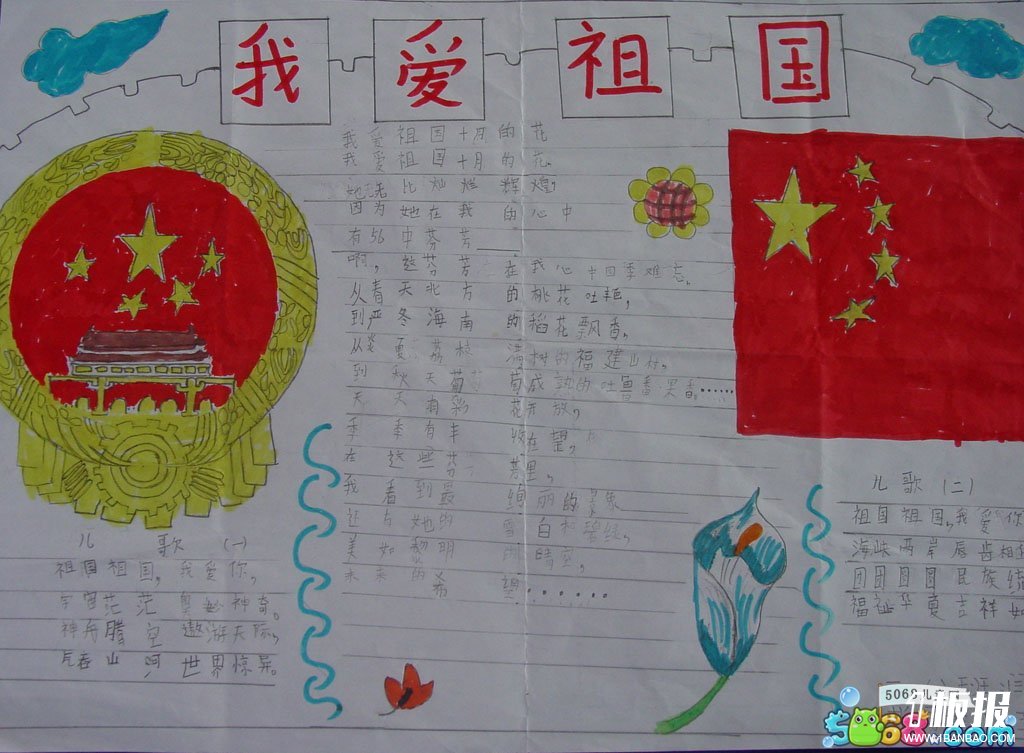 我爱祖国
我爱祖国十月的花
我爱祖国十月的花
她比灿烂辉煌,
因为她在我的心中
有56中芬芳
啊,这芬芳在我心中四季难忘,
从春天北方的桃花吐艳,
到严冬海南的稻花飘香,
从炎夏荔枝满树的福建山村,
到秋天葡萄成熟的吐鲁番果香……
天天有彩花开放,
季季有丰收在望,
在这些芬芳里,
我看到最绚丽的景象
还有她的雪白和碧绿,
美如黎明的晴空,
未来的希望……
儿歌(一)
祖国祖国,我爱你,
宇宙茫茫奥妙神奇。
神舟腾空遨游天际,
气吞山河世界惊异。
儿歌(二)
祖国祖国,我爱你
海峡两岸唇齿相
团圆圆民族
福祉华夏吉祥如
5068儿童
板报
WWW.1BANBAO.COM